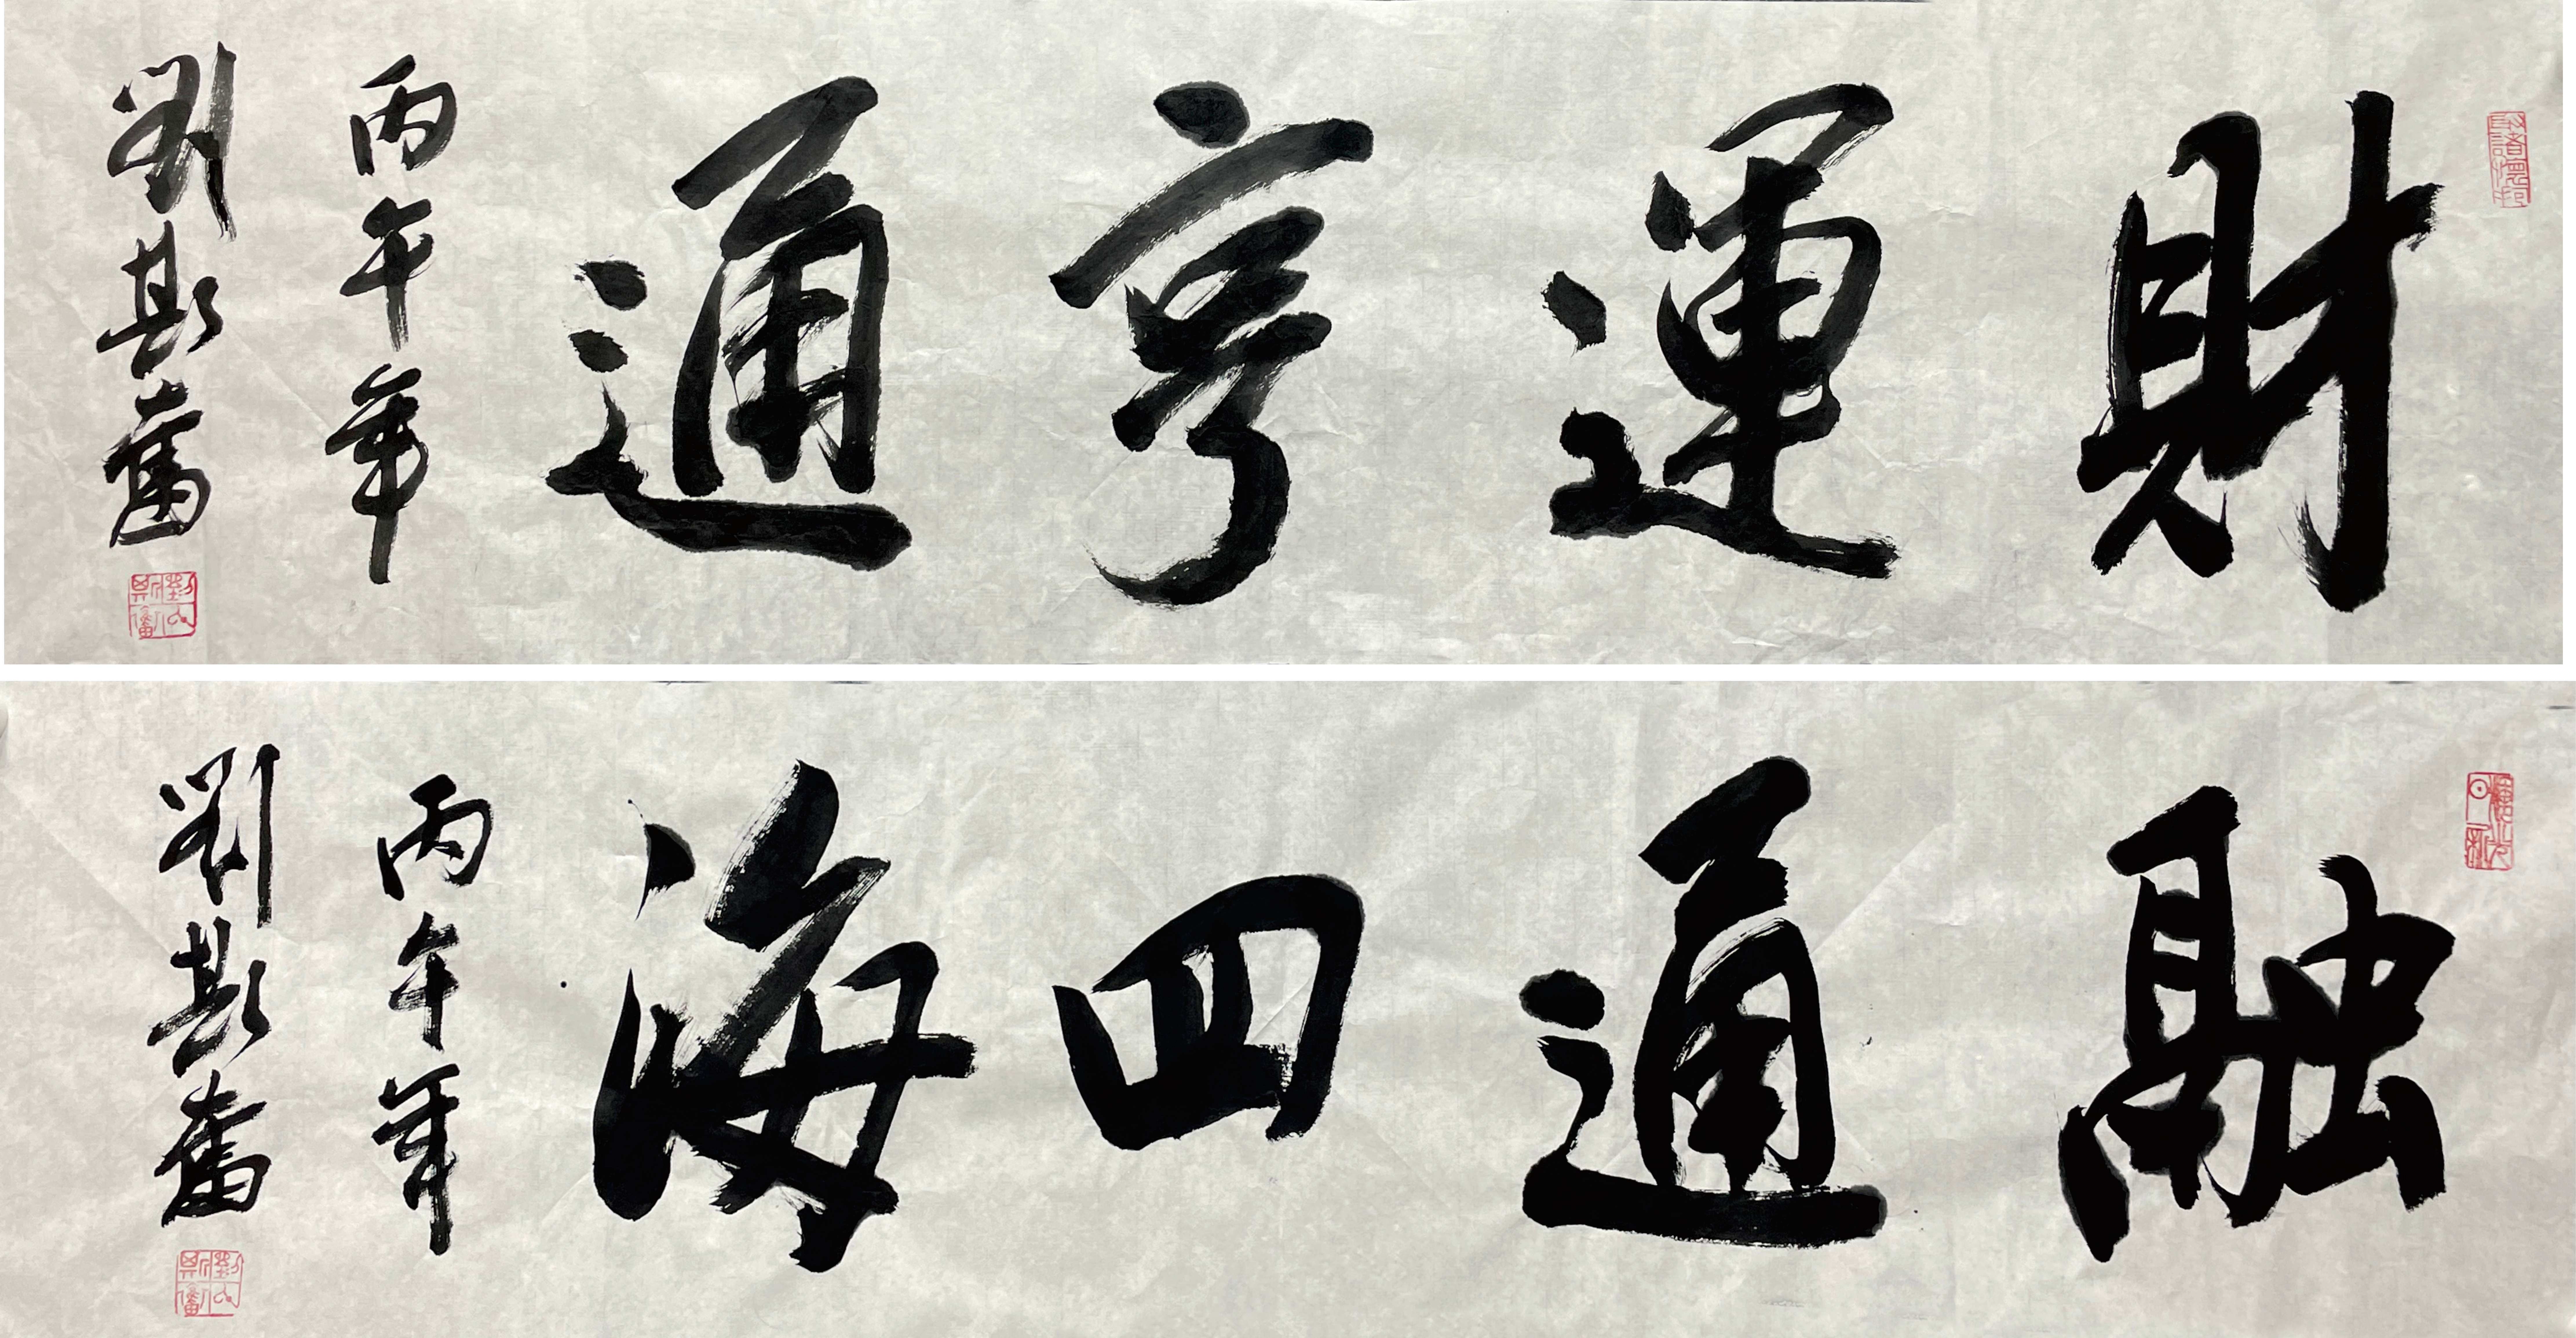 財運亨通
丙午年
劉斯奮
融通四海
丙午年
劉斯奮